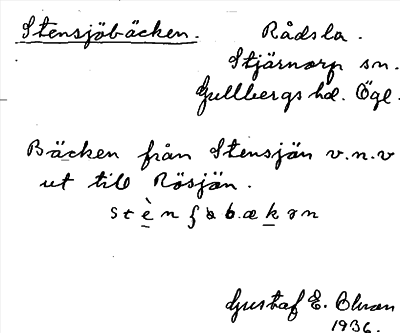 Stensjöbäcken. Rådsla.
Stjärnorp sn.
Gullbergs hd. Ögl.
Bäcken från Stensjön v.n.v
ut till Rösjön.
Gustaf E. Bluan
1936.